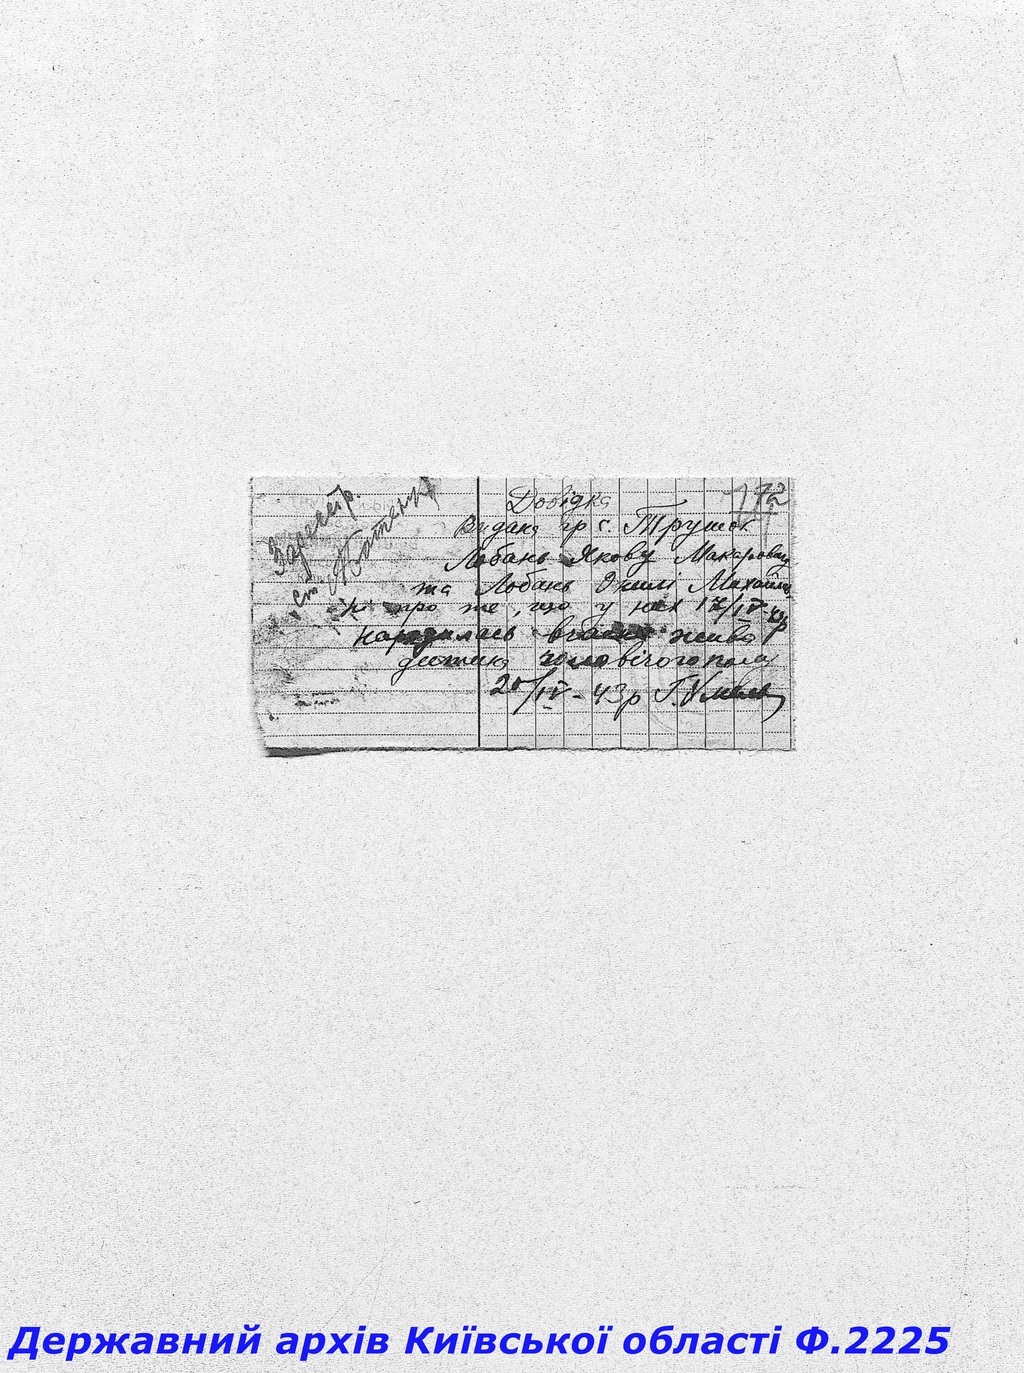 172
Довідка
Видана гр с. Трушок
Лобань Якову Макаровичу
та Лобань Михайлів-
ні про те, що у них 17/IV-43р
народилась жива
дитина чоловічого пола
20/IV-43р
Зареєстр
Державний архів Київської області Ф.2225